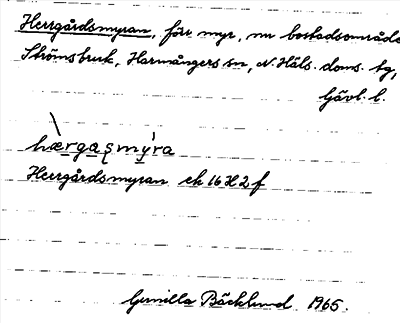 Herrgårdsmyran, förr myr, nu bostadsområde
Strömsbruk, Harmångers sn, N. Häls. doms. tg,
Gävl. l.
hærgaʂmýra
Herrgårdsmyran ek 16 H 2 f
Gunilla Bäcklund 1965.